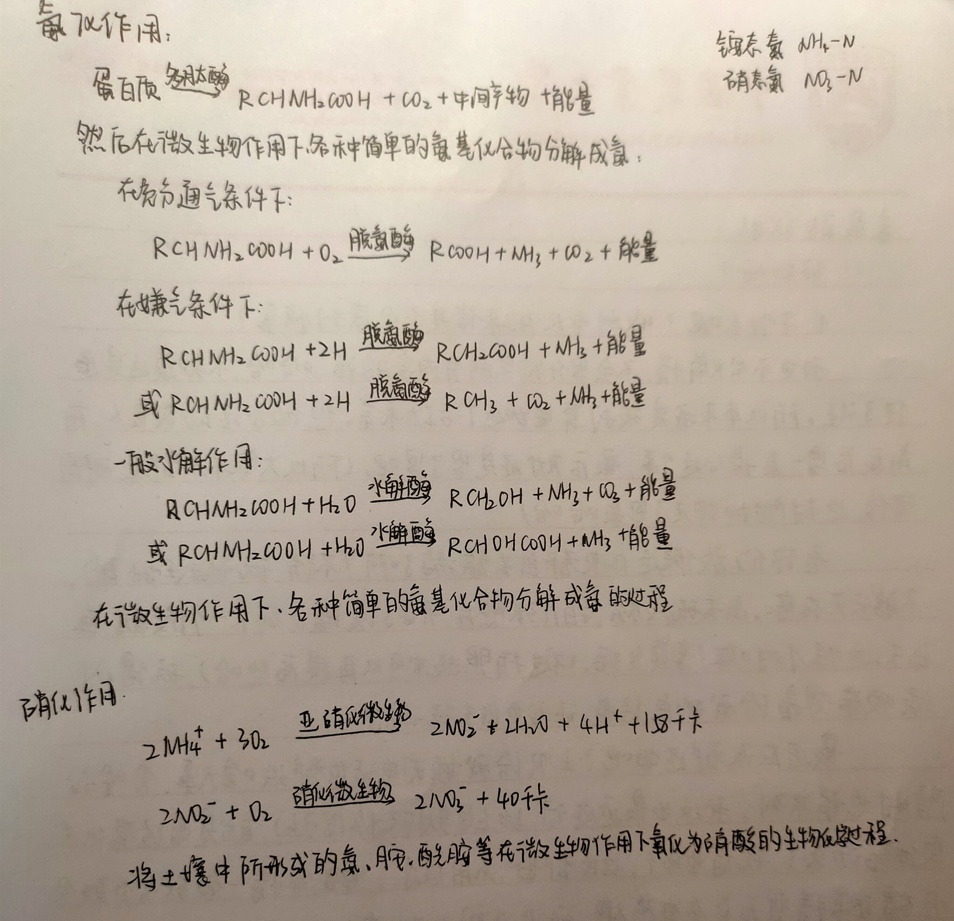 氨化作用:
铵态氮 NH₄-N
硝态氮 NO₃-N
蛋白质 多肽酶→ RCHNH₂COOH + CO₂ + 中间产物 + 能量
然后在微生物作用下,各种简单的氨基化合物分解成氨:
在充分通气条件下:
RCHNH₂COOH + O₂ 脱氨酶→ RCOOH + NH₃ + CO₂ + 能量
在嫌气条件下:
RCHNH₂COOH + 2H 脱氨酶→ RCH₂COOH + NH₃ + 能量
或 RCHNH₂COOH + 2H 脱氨酶→ RCH₃ + CO₂ + NH₃ + 能量
一般水解作用:
RCHNH₂COOH + H₂O 水解酶→ RCH₂OH + NH₃ + CO₂ + 能量
或 RCHNH₂COOH + H₂O 水解酶→ RCHOHCOOH + NH₃ + 能量
在微生物作用下、各种简单的氨基化合物分解成氨的过程
硝化作用.
2NH₄⁺ + 3O₂ 亚硝化微生物→ 2NO₂⁻ + 2H₂O + 4H⁺ + 158千卡
2NO₂⁻ + O₂ 硝化微生物→ 2NO₃⁻ + 40千卡
将土壤中所形成的氨、胺、酰胺等在微生物作用下氧化为硝酸的生物化学过程.